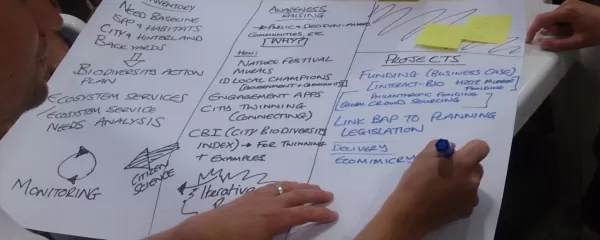 INVENTORY
NEED BASELINE
SPP + HABITATS
CITY + HINTERLAND
BACKWARDS
BIODIVERSITY ACTION
PLAN
ECOSYSTEM SERVICES
/ECOSYSTEM SERVICE
NEEDS ANALYSIS
MONITORING
CITIZEN
SCIENCE
AWARENESS
RAISING
→ PUBLIC + DECISION-MAKERS
COMMUNITIES, ETC
[WHY?]
HOW:
NATURE FESTIVAL
MURALS
ID LOCAL CHAMPIONS
(GOVERNMENT + COMMUNITY)
ENGAGEMENT APPS
CITY TWINNING
(CONNECTING)
CBI (CITY BIODIVERSITY
INDEX) → FOR TWINNING
+ EXAMPLES
Iterative
PROJECTS
FUNDING (BUSINESS CASE)
[INTERACT-BIO H2020
FUNDING
PHILANTHROPIC FUNDING
CROWD SOURCING]
LINK BAP TO PLANNING
LEGISLATION
DELIVERY
ECOMIMICRY